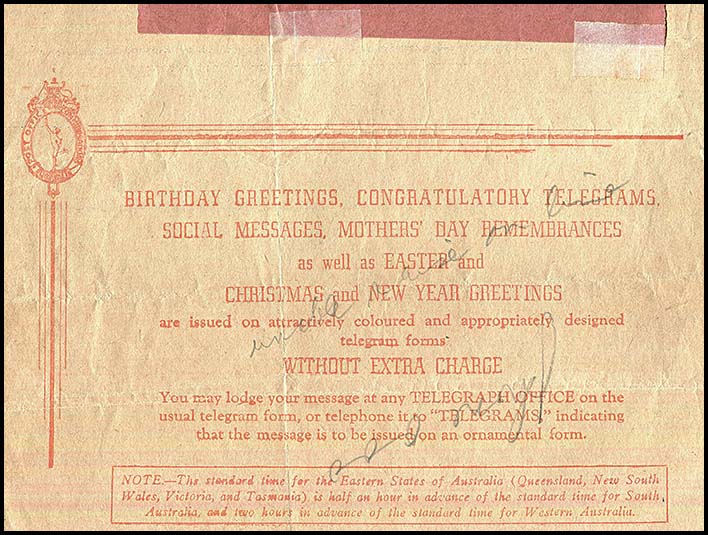 BIRTHDAY GREETINGS, CONGRATULATORY TELEGRAMS,
SOCIAL MESSAGES, MOTHERS' DAY REMEMBRANCES
as well as EASTER and
CHRISTMAS and NEW YEAR GREETINGS
are issued on attractively coloured and appropriately designed
telegram forms
WITHOUT EXTRA CHARGE
You may lodge your message at any TELEGRAPH OFFICE on the
usual telegram form, or telephone it to "TELEGRAMS," indicating
that the message is to be issued on an ornamental form.
NOTE.—The standard time for the Eastern States of Australia (Queensland, New South
Wales, Victoria, and Tasmania) is half an hour in advance of the standard time for South
Australia, and two hours in advance of the standard time for Western Australia.